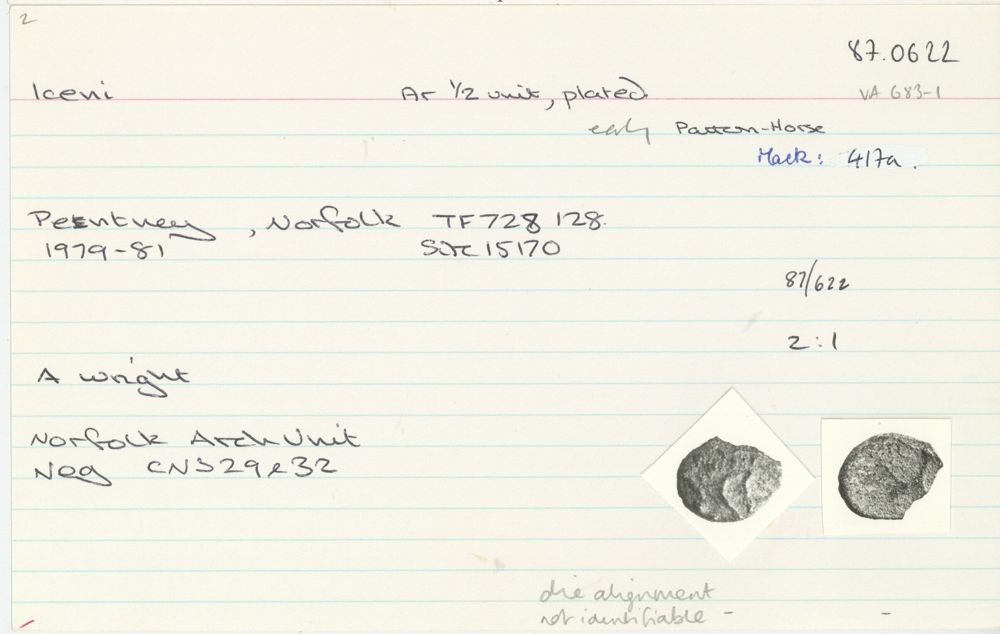 2
87.0622
Iceni Ar ½ unit, plated.
VA 683-1
early Pattern-Horse
Mack: 417a.
Pentney, Norfolk TF 728 128.
1979-81 Site 15170
87/622
2:1
A Wright
Norfolk Arch Unit
Neg CNS 29 & 32
die alignment
not identifiable - -